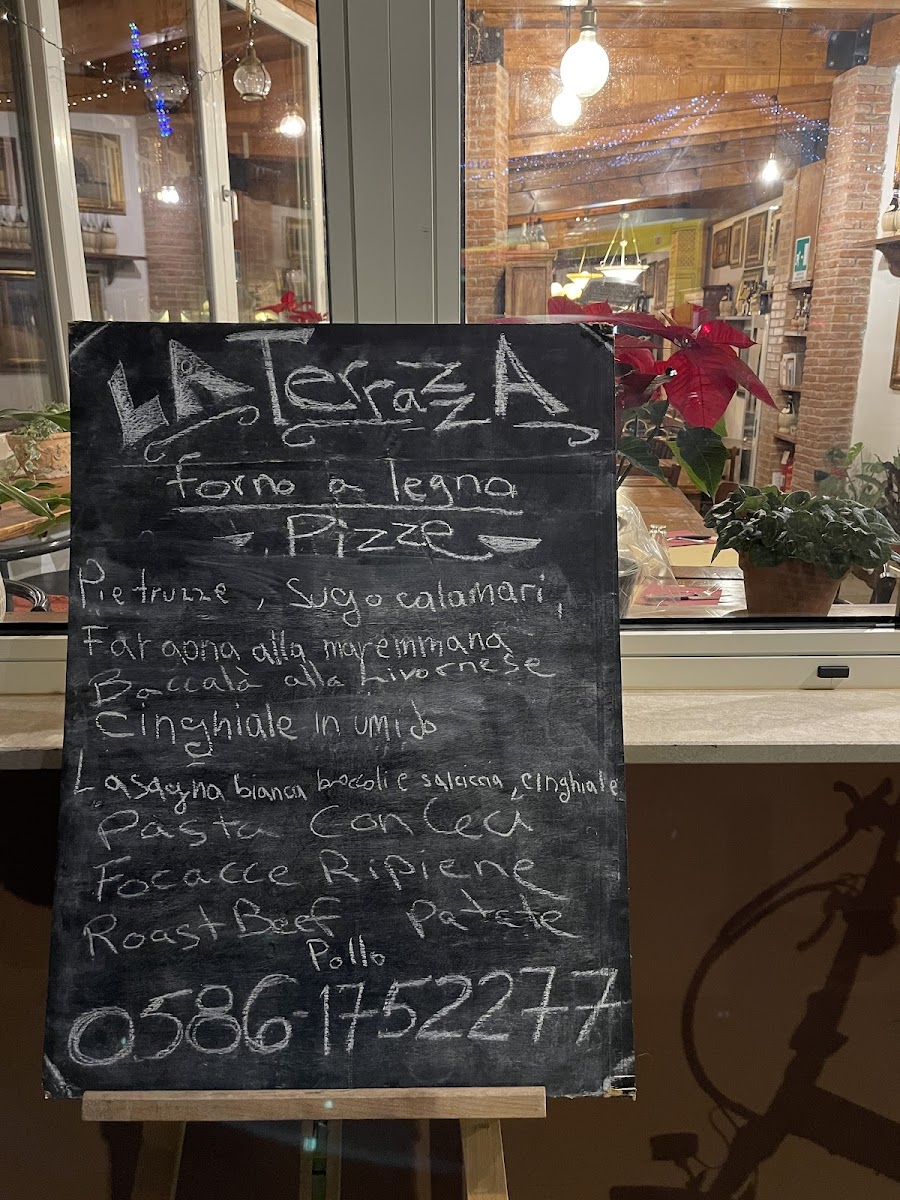 LA TerrazzA
forno a legna
Pizze
Pietruzze, Sugo calamari,
Faraona alla maremmana
Baccalà alla Livornese
Cinghiale in umido
Lasagna bianca broccoli e salciccia, cinghiale
Pasta Con Ceci
Focacce Ripiene
Roast Beef Patate
Pollo
0586-1752277